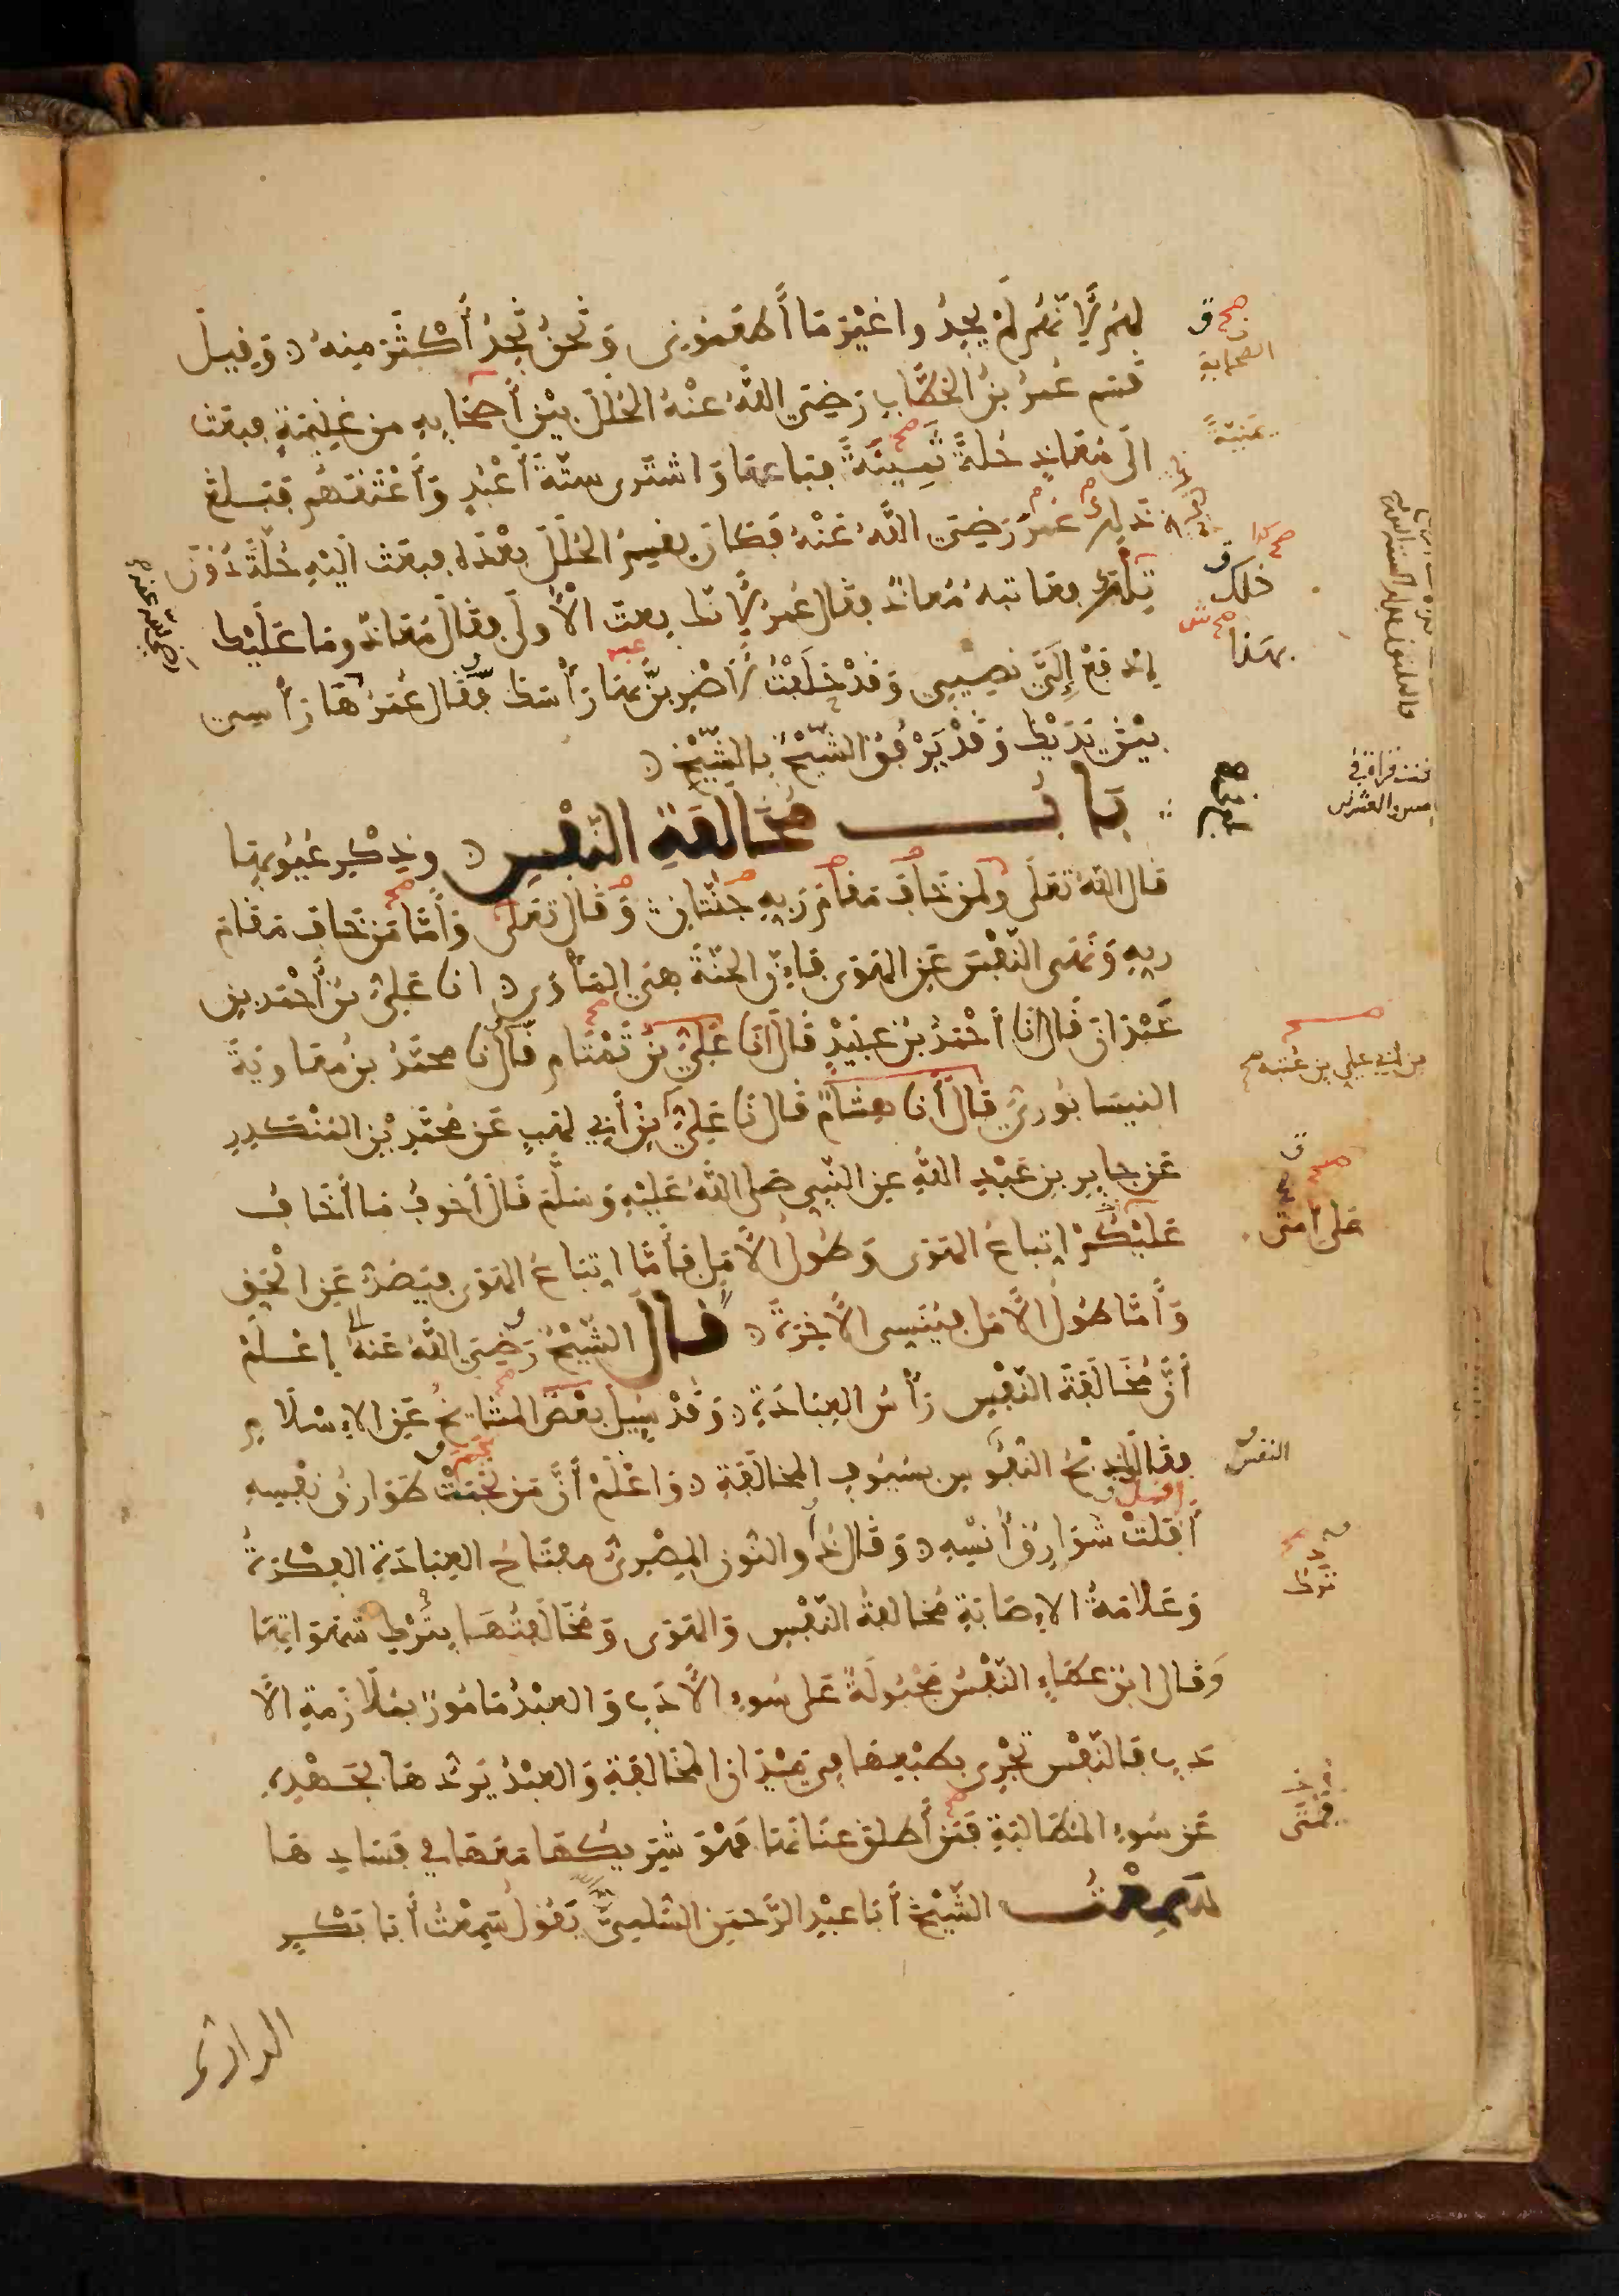 لهم لأنهم لم يجدوا غير ما أطعموني ونحن نجد أكثر منه وقيل
قسم عمر بن الخطاب رضي الله عنه الحلل بين أصحابه من غنيمة فبعث
الى معاذ حلة ثمينة فباعها واشترى ستة أعبد وأعتقهم فبلغ
ذلك عمر رضي الله عنه فكان يقسم الحلل بعده فبعث اليه حلة دون
تلك فعاتبه معاذ فقال عمر لأنك بعت الأولى فقال معاذ وما عليك
إدفع إلي نصيبي وقد حلفت لأضربن بها رأسك فقال عمر ها رأسي
بين يديك وقد يرفق الشيخ بالشيخ
باب مخالفة النفس وذكر عيوبها
قال الله تعلى ولمن خاف مقام ربه جنتان وقال تعلى وأما من خاف مقام
ربه ونهى النفس عن الهوى فإن الجنة هي المأوى انا علي بن أحمد بن
عبدان قال أنا أحمد بن عبيد قال انا علي بن تمتام قال نا محمد بن معاوية
النيسابوري قال أنا هشام قال نا علي بن أبي لهب عن محمد بن المنكدر
عن جابر بن عبد الله عن النبي صلى الله عليه وسلم قال أخوف ما أخاف
عليكم اتباع الهوى وطول الأمل فأما اتباع الهوى فيصد عن الحق
وأما طول الأمل فينسي الآخرة قال الشيخ رضي الله عنه إعلم
أن مخالفة النفس رأس العبادة وقد سيل بعض المشايخ عن الاسلام
فقال ذبح النفوس بسيوف المخالفة واعلم أن من نجمت طوارق نفسه
أفلت شوارق أنسه وقال ذو النون المصري مفتاح العبادة الفكرة
وعلامة الإصابة مخالفة النفس والهوى ومخالفتها بترك شهواتها
وقال ابن عطاء النفس مجبولة على سوء الأدب والعبد مامور بملازمة الأ
دب فالنفس تجري بطبعها في ميدان المخالفة والعبد يردها بجهده
عن سوء المطالبة فمن أطلق عنانها فهو شريكها معها في فسادها
سمعت الشيخ أبا عبد الرحمن السلمي يقول سمعت أبا بكر
الرازي
الصحابة
ذلك
بهذا
بن أبي علي بن عتبه
على أمتي
النفس
فمن